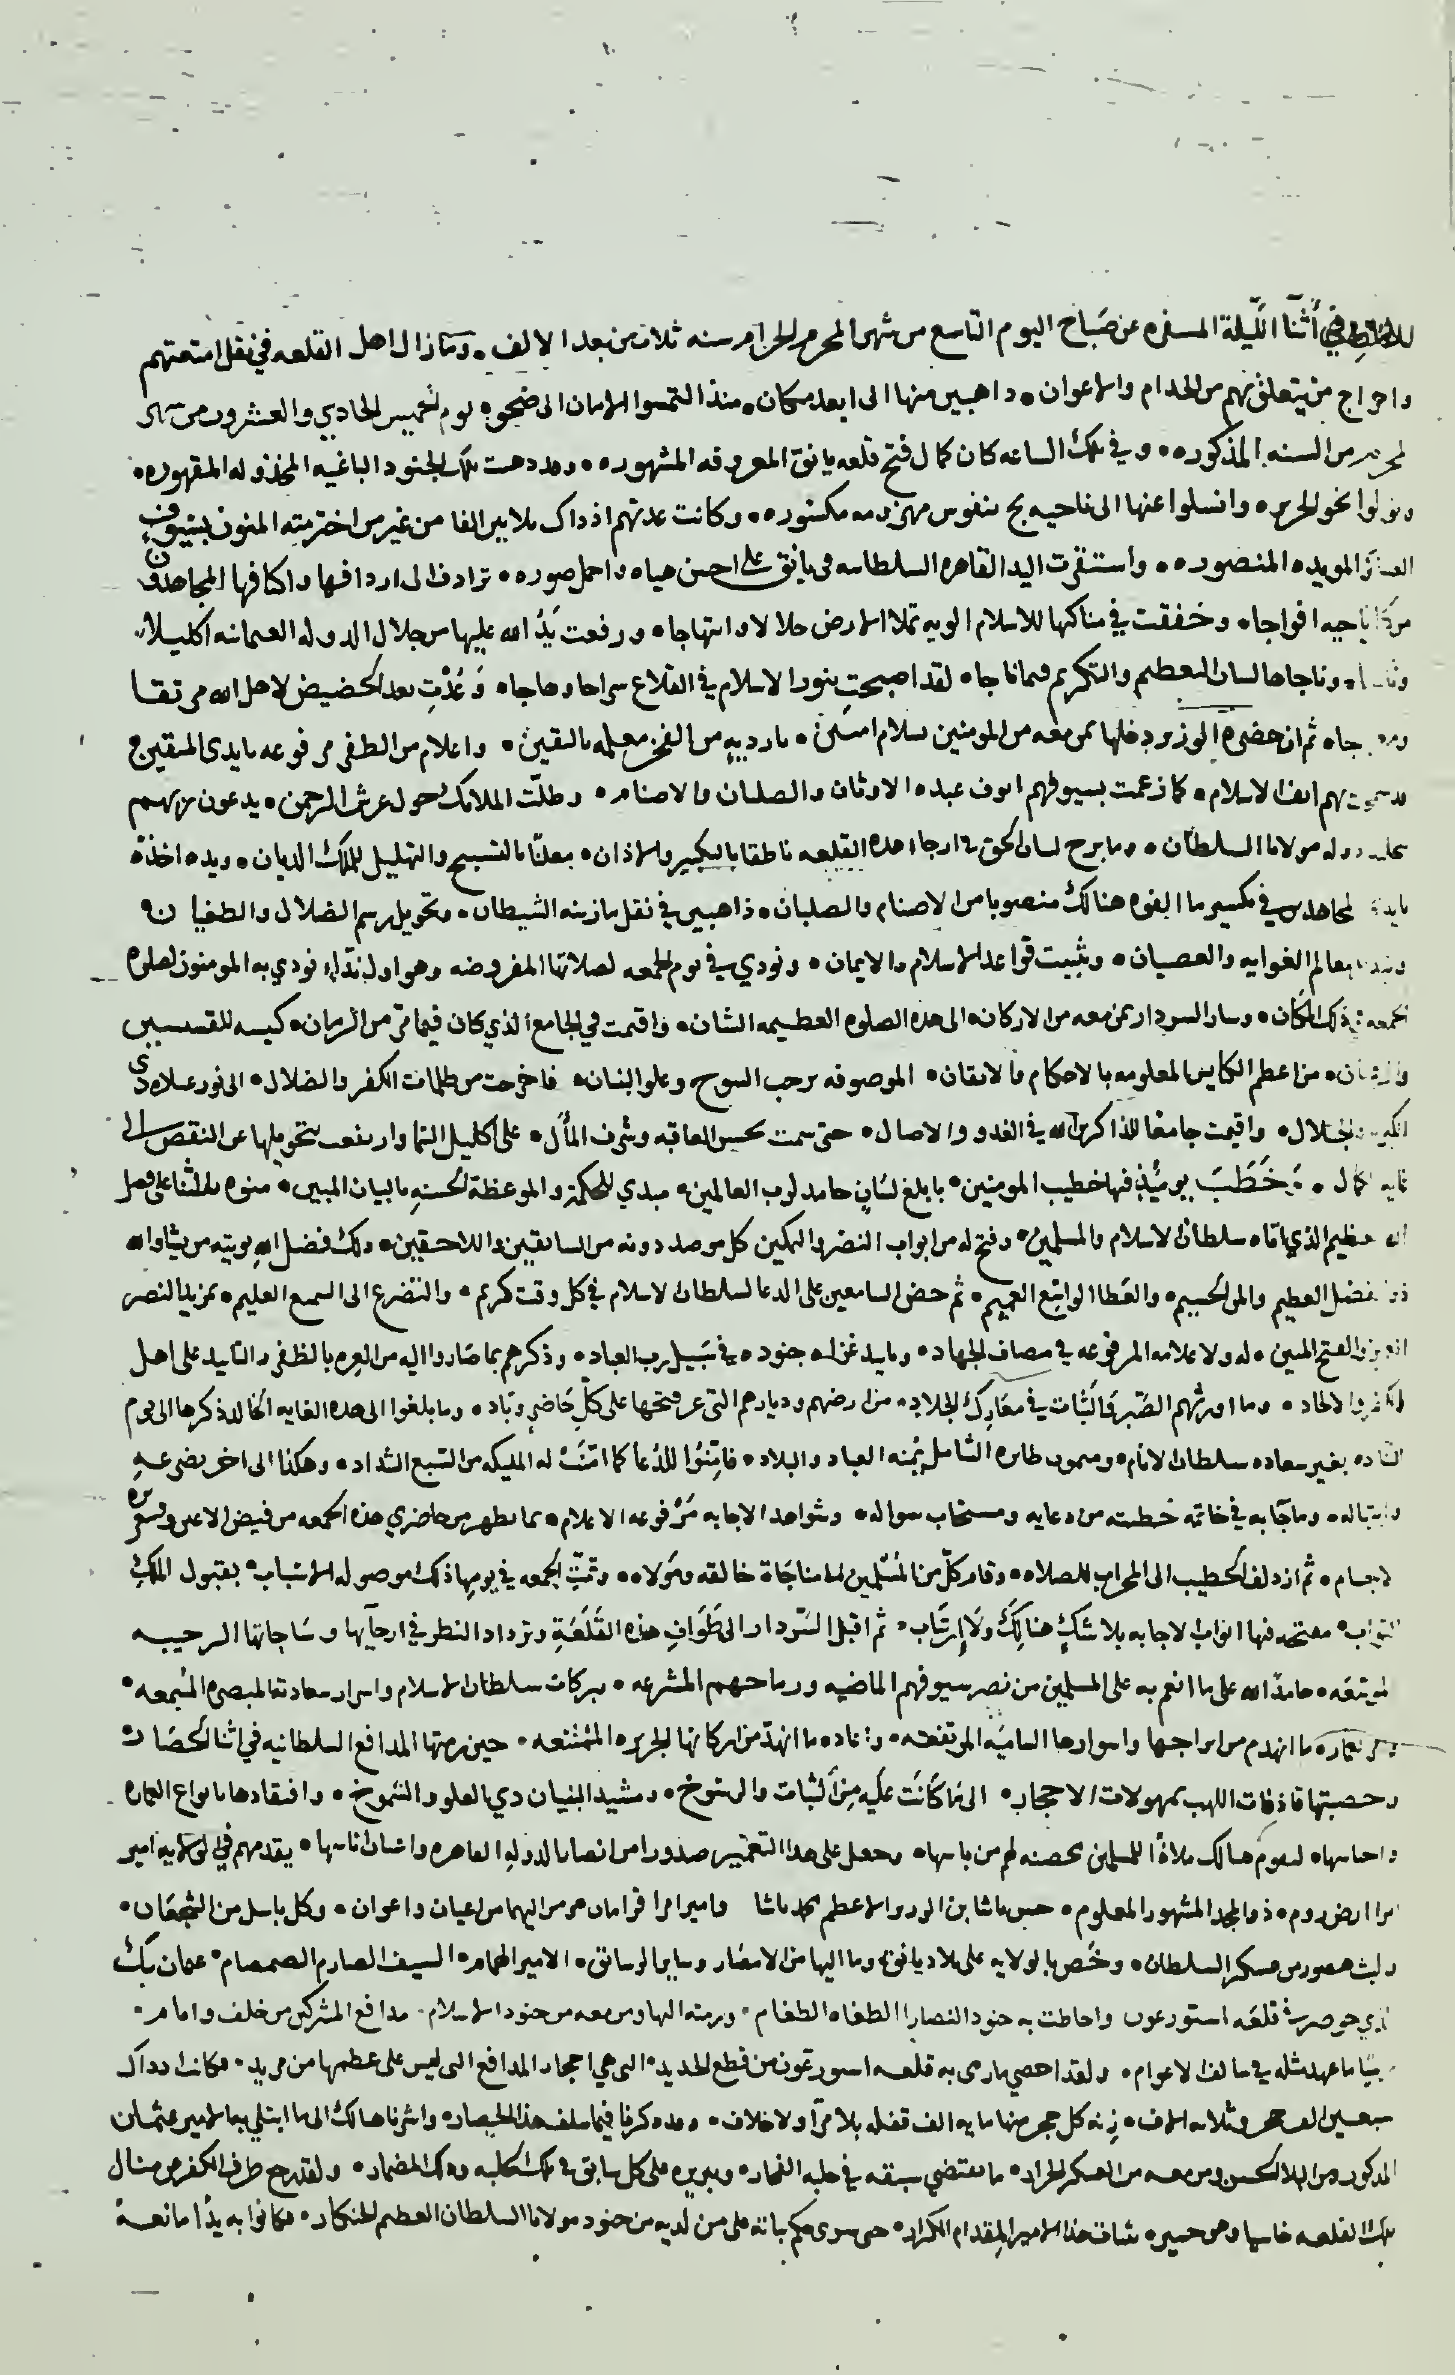 في أثنآ اللّيلة المسفره عن صَباح اليوم التاسع من شهر المحرم الحرام سنه ثلاث من بعد الالف ۰ وما زال اهل القلعه في نقل امتعتهم
واخراج من يتعلق بهم من الخدام والاعوان ۰ ذاهبين منها الى ابعد مكان ۰ منذ التمسوا الامان الى ضحوه يوم الخميس الحادي والعشرون من شهر
المحرم من السنه المذكوره ۰۰ وفي تلك الساعه كان كمال فتح قلعه يانق المعروفه المشهوره ۰۰ وقد ذهبت تلك الجنود الباغيه المخذوله المقهوره ۰
وانسلوا عنها الى ناحيه بج بنفوس مهزومه مكسوره ۰۰ وكانت عدتهم اذ ذاك ثلاثين الفا من غير من اخترمته المنون بسيوف
المويده المنصوره ۰۰ واستقرت اليد القاهره السلطانيه في يانق على احسن حياه واجمل صوره ۰ ترادف الى اردافها واكنافها المجاهدون
ناحيه افواجا ۰ وخفقت في مناكبها للاسلام الويه تملا الارض جلالا وابتهاجا ۰ ورفعت يَدُ الله عليها من جلال الدوله العمانيه اكليلا
وناجاها لسان التعظيم والتكريم فيما ناجا ۰ لقد اصبحتِ بنور الاسلام في القلاع سراجا وهاجا ۰ وَعُدْتِ بعد الحضيض لاهل الله مرتقا
ثم ان حضره الوزير دخلها بمن معه من المومنين بسلام امنين ۰ بارديهٍ من الفخر معلمه باليقين ۰ واعلام من الظفر مرفوعه بايدي المتقين ۰
بهم انف الاسلام ۰ كما زعمت بسيوفهم انوف عبده الاوثان والصلبان والاصنام ۰ وظلّت الملائك حول عرش الرحمن ۰ يدعون ربهم
دوله مولانا السلطان ۰ وما برح لسان الحق في ارجاء هذه القلعه ناطقا بالتكبير والاذان ۰ معلنا بالتسبيح والتهليل للملك الديان ۰ ويده اخذة
المجاهدين في تكسير ما الفوه هنالك منصوبا من الاصنام والصلبان ۰ ذاهبين في نقل ما زينه الشيطان ۰ وتحويل رسم الضلال والطغيان ۰
معالم الغوايه والعصيان ۰ وتثبيت قواعد الاسلام والايمان ۰ ونودي في يوم الجمعه لصلاتها المفروضه وهو اول نداء نودي به المومنون لصلوه
الجمعه في ذلك المكان ۰ وسار السردار بمن معه من الاركان ۰ الى هذه الصلوه العظيمه الشان ۰ واقيمت في الجامع الذي كان فيما مر من الزمان ۰ كنيسه للقسيسين
والرهبان ۰ من اعظم الكنايس المعلومه بالاحكام والاتقان ۰ الموصوفه برحب السوح وعلو البنيان ۰ فاخرجت من ظلمات الكفر والضلال ۰ الى نور عبادة ذي
والجلال ۰ واقيمت جامعًا للذاكرين الله في الغدو والاصال ۰ حتى سمت بحسن العاقبه وشرف المأل ۰ على اكليل السما وارتفعت بتحويلها عن النقص الى
غايه الكمال ۰ وَخَطَبَ يوميذٍ فيها خطيب المومنين ۰ بابلغ لسَان حامد لرب العالمين ۰ مبدي للحكمة والموعظة الحسنه بالبيان المبين ۰ منوه بالثنا على فضل
الله العظيم الذي اتاه سلطان الاسلام والمسلمين ۰ وفتح له من ابواب النصر والتمكين كل موصد دونه من السابقين واللاحقين ۰ ذلك فضل الله يوتيه من يشا والله
ذو الفضل العظيم والمن الجسيم ۰ والعَطا الواسِع العميم ۰ ثم حض السامعين على الدعا لسلطان الاسلام في كل وقت كريم ۰ والتضرع الى السميع العليم ۰ بمزيد النصر
العزيز والفتح المبين ۰ له ولاعلامه المرفوعه في مصاف الجهاد ۰ وتاييد غزاه جنوده ۰ في سَبيل رب العباد ۰ وذكرهم بما صَاروا اليه من العز بالظفر والتاييد على اهل
الكفر والالحاد ۰ وما اورثهم الصَّبر والثَبات في معَارك الجلاد ۰ من ارضهم وديارهم التي عز فتحها على كلّ حَاضرٍ وبَاد ۰ وما بلغوا الى هذه الغايه الخالد ذكرها الى يوم
التناد ۰ بغير سعاده سلطان الانام ۰ وميمون طايره الشامل يُمنه العباد والبلاد ۰ فامِّنُوا للدُعا كما امَّنَتْ له المليكه من السَّبع الشداد ۰ وهكذا الى اخر تضرعهِ
وابتهاله ۰ وما جَآ به في خاتمه خطبته من دعايه ومستجاب سواله ۰ وشواهد الاجابه مَرْفوعه الاعلام ۰ بما يظهر من حاضري هذه الجمعه من فيض الاعين وقشعريره
الاجسام ۰ ثم ازدلف الخطيب الى المحراب للصلاه ۰ وقام كلّ من المُسْلمين لمناجَاة خالقه ومَولاه ۰۰ وتمّتِ الجمعه في يومها ذلك موصوله الاسْبَاب ۰ بقبول الملك
التواب ۰ مفتحه فيها ابواب الاجابه بلا شكٍ هنالِكَ ولا إرتَاب ۰ ثم اقبل السَّردار الى طَوَافِ هذه القَلعَةِ وترداد النظر في ارجآيها وسَاحاتها الرحيبه
المرتفعه ۰ حامدًا الله على ما انعم به على المسلمين من نصر سيوفهم الماضيه ورماحهم المشرعه ۰ ببركات سلطان الاسلام واسرار سعادته المبصره المُسمعه ۰
وامر بعماره ما انهدم من ابراجها واسوارها الساميَه المرتفعه ۰ واعاده ما انهدّ من اركانها الحريزه المُمتنعه ۰ حين رمتها المدافع السلطانيه في اثنآ الحصَار
وحصبتها قاذفات اللهب بمهولات الاحجار ۰ الى مَا كَانَت عليه مِنَ الثبات والرسُوخ ۰ ومشيد البنيان ذي العلو والشموخ ۰ وافتقادها بانواع العماره
واحاسها ۰ ليقوم هنالك ملاذًا للمسلمين يحصنهم من باسها ۰ وجعل على هذا التعمير صدورا من انصار الدوله القاهره واعيان اناسها ۰ يقدمهم في الولايه امير
امرا ارض روم ۰ ذو المجد المشهور المعلوم ۰ حسن باشا بن الوزير الاعظم محمد باشا وامير امرا قرامان ومن اليهما من اعيان واعوان ۰ وكل باسل من الشجعان ۰
وليث هصور من عسكر السلطان ۰ وخُص بالولايه على بلاد يانق ۰ وما اليها من الامصار وساير الرساتق ۰ الامير الهمام ۰ السيف الصارم الصمصام ۰ عثمان بك
الذي حوصر في قلعَه استورغون واحاطت به جنود النصارا الطغاه الطغام ۰ ورمته اليها ومن معه من جنود الاسلام ۰ مدافع المشركين من خلف وامام ۰
رميًا ما عهد مثله في سالف الاعوام ۰ ولقد احصي ما رمى به قلعه استورغون من قطع الحديد ۰ التي هي احجار المدافع التي ليس على عظمها من مزيد ۰ فكانت اذ ذاك
سبعين الف حجر وثلاثه الاف ۰ زنه كل حجر منها مايه الف قفله بلا مرآ ولا خلاف ۰ وقد ذكرنا فيما سلف هذا الحصار ۰ واشرنا هنالك الى ما ابتلي به الامير عثمان
المذكور من البلا الحسن ومن معه من العسكر الجرار ۰ ما يقتضي سبقه في حلبه الفخار ۰ وتبريزه على كل سابق في تلك الحلبه وذلك المضمار ۰ ولقد رجع طرف الكفر من منال
تلك القلعه خاسيا وهو حسير ۰ بثبات هذا الامير المقدام الكرار ۰ حتى سرى حكم باته على من لديه من جنود مولانا السلطان العظيم الخنكار ۰ فكانوا به يدًا مانعة